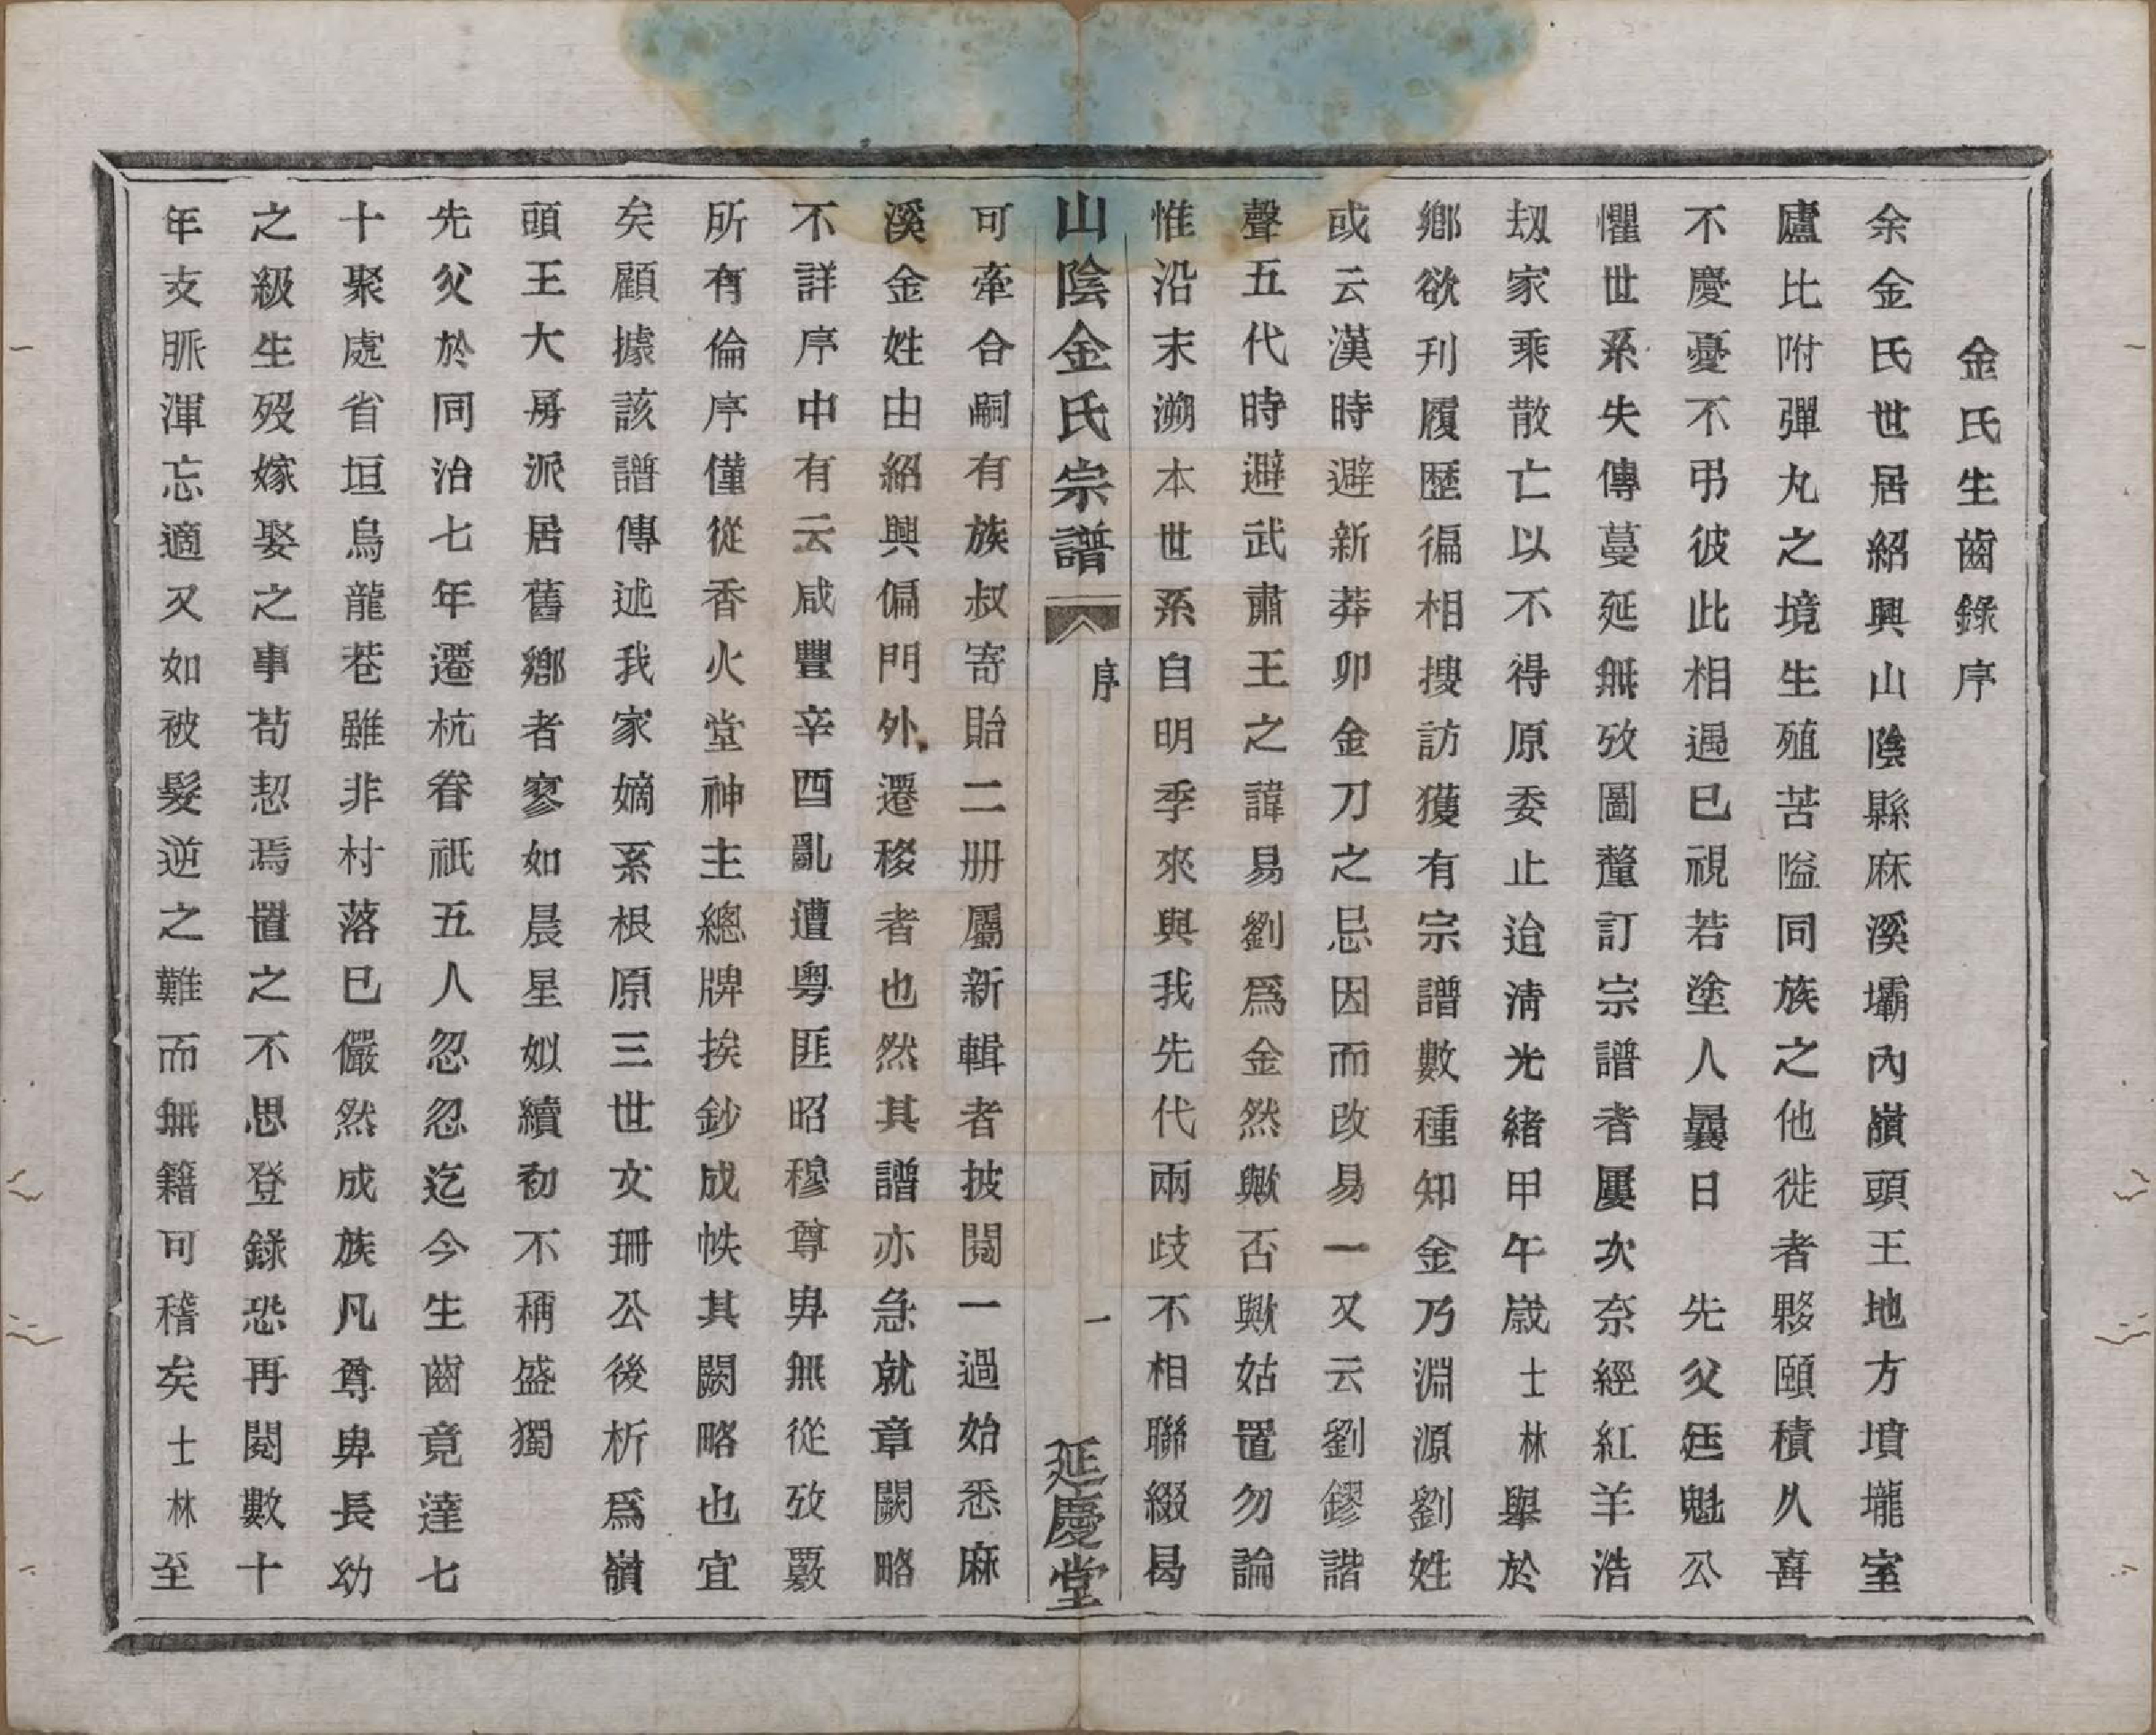 金氏生齒錄序
余金氏世居紹興山陰縣麻溪壩內嶺頭王地方墳壠室
廬比附彈丸之境生殖苦隘同族之他徙者夥頤積久喜
不慶憂不弔彼此相遇已視若塗人曩日　先父廷魁公
懼世系失傳蔓延無攷圖釐訂宗譜者屢次奈經紅羊浩
刼家乘散亡以不得原委止迨淸光緖甲午歲士林舉於
鄉欲刊履歷徧相搜訪獲有宗譜數種知金乃淵源劉姓
或云漢時避新莽卯金刀之忌因而改易一又云劉鏐諧
聲五代時避武肅王之諱易劉爲金然歟否歟姑置勿論
惟沿末溯本世系自明季來與我先代兩歧不相聯綴曷
山陰金氏宗譜　序　一　延慶堂
可牽合嗣有族叔寄貽二册屬新輯者披閱一過始悉麻
溪金姓由紹興偏門外遷移者也然其譜亦急就章闕略
不詳序中有云咸豐辛酉亂遭粤匪昭穆尊卑無從攷覈
所有倫序僅從香火堂神主總牌挨鈔成帙其闕略也宜
矣顧據該譜傳述我家嫡系根原三世文珊公後析爲嶺
頭王大房派居舊鄉者寥如晨星姒續初不稱盛獨
先父於同治七年遷杭眷祇五人忽忽迄今生齒竟達七
十聚處省垣烏龍巷雖非村落已儼然成族凡尊卑長幼
之級生歿嫁娶之事苟恝焉置之不思登錄恐再閱數十
年支脈渾忘適又如被髮逆之難而無籍可稽矣士林至